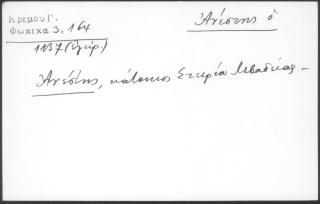 Κρεμού Γ.
Φωκικα 3, 164
1137 (ἐλεύθ.)
Ἀνέστης ὁ
Ἀνέστης, κάτοικος Στειρίου Λεβαδείας.–